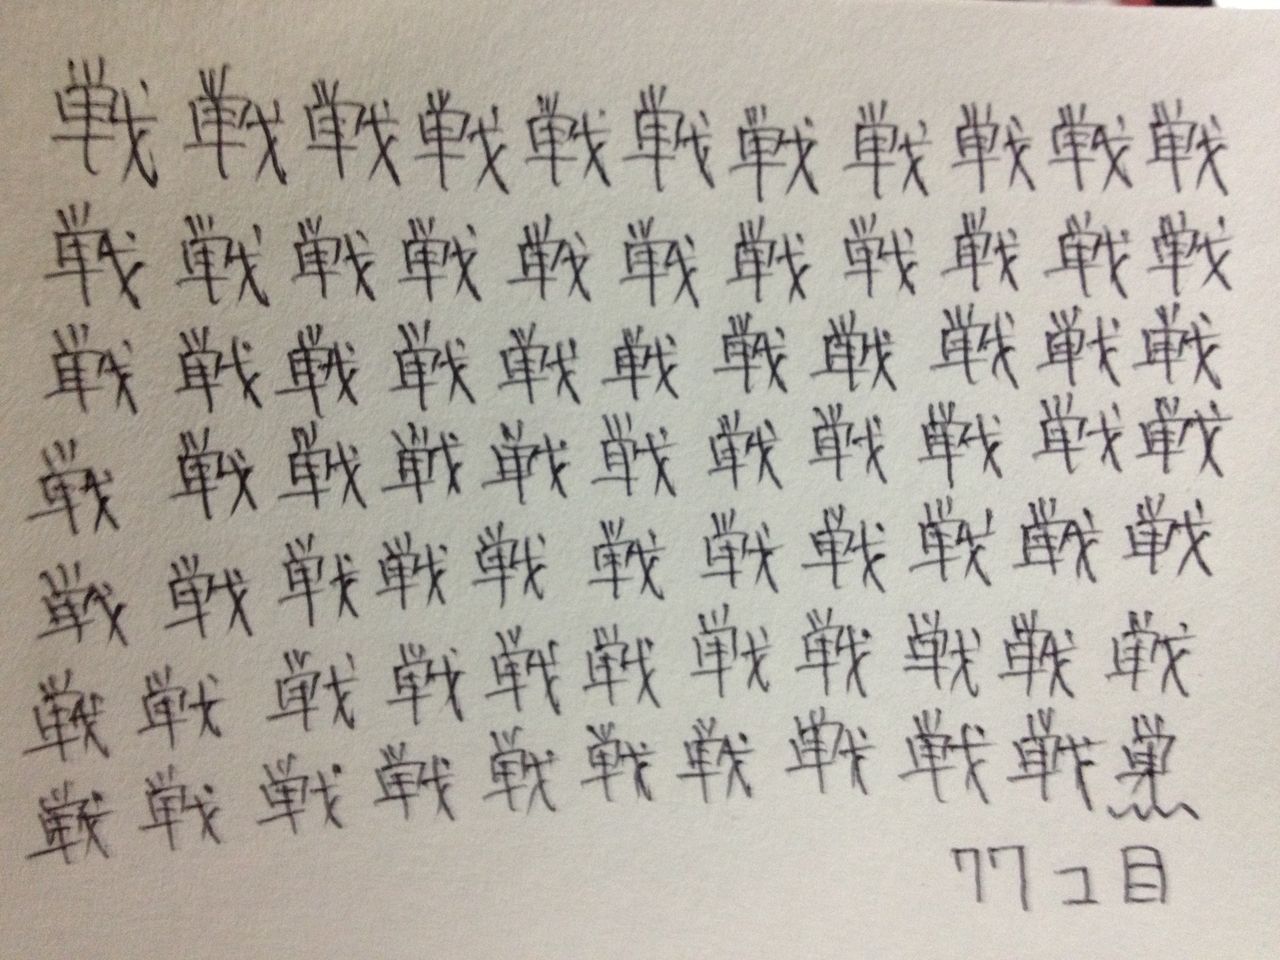 戦戦戦戦戦戦戦戦戦戦戦
戦戦戦戦戦戦戦戦戦戦戦
戦戦戦戦戦戦戦戦戦戦戦
戦戦戦戦戦戦戦戦戦戦戦
戦戦戦戦戦戦戦戦戦戦戦
戦戦戦戦戦戦戦戦戦戦戦
戦戦戦戦戦戦戦戦戦戦巣
77コ目